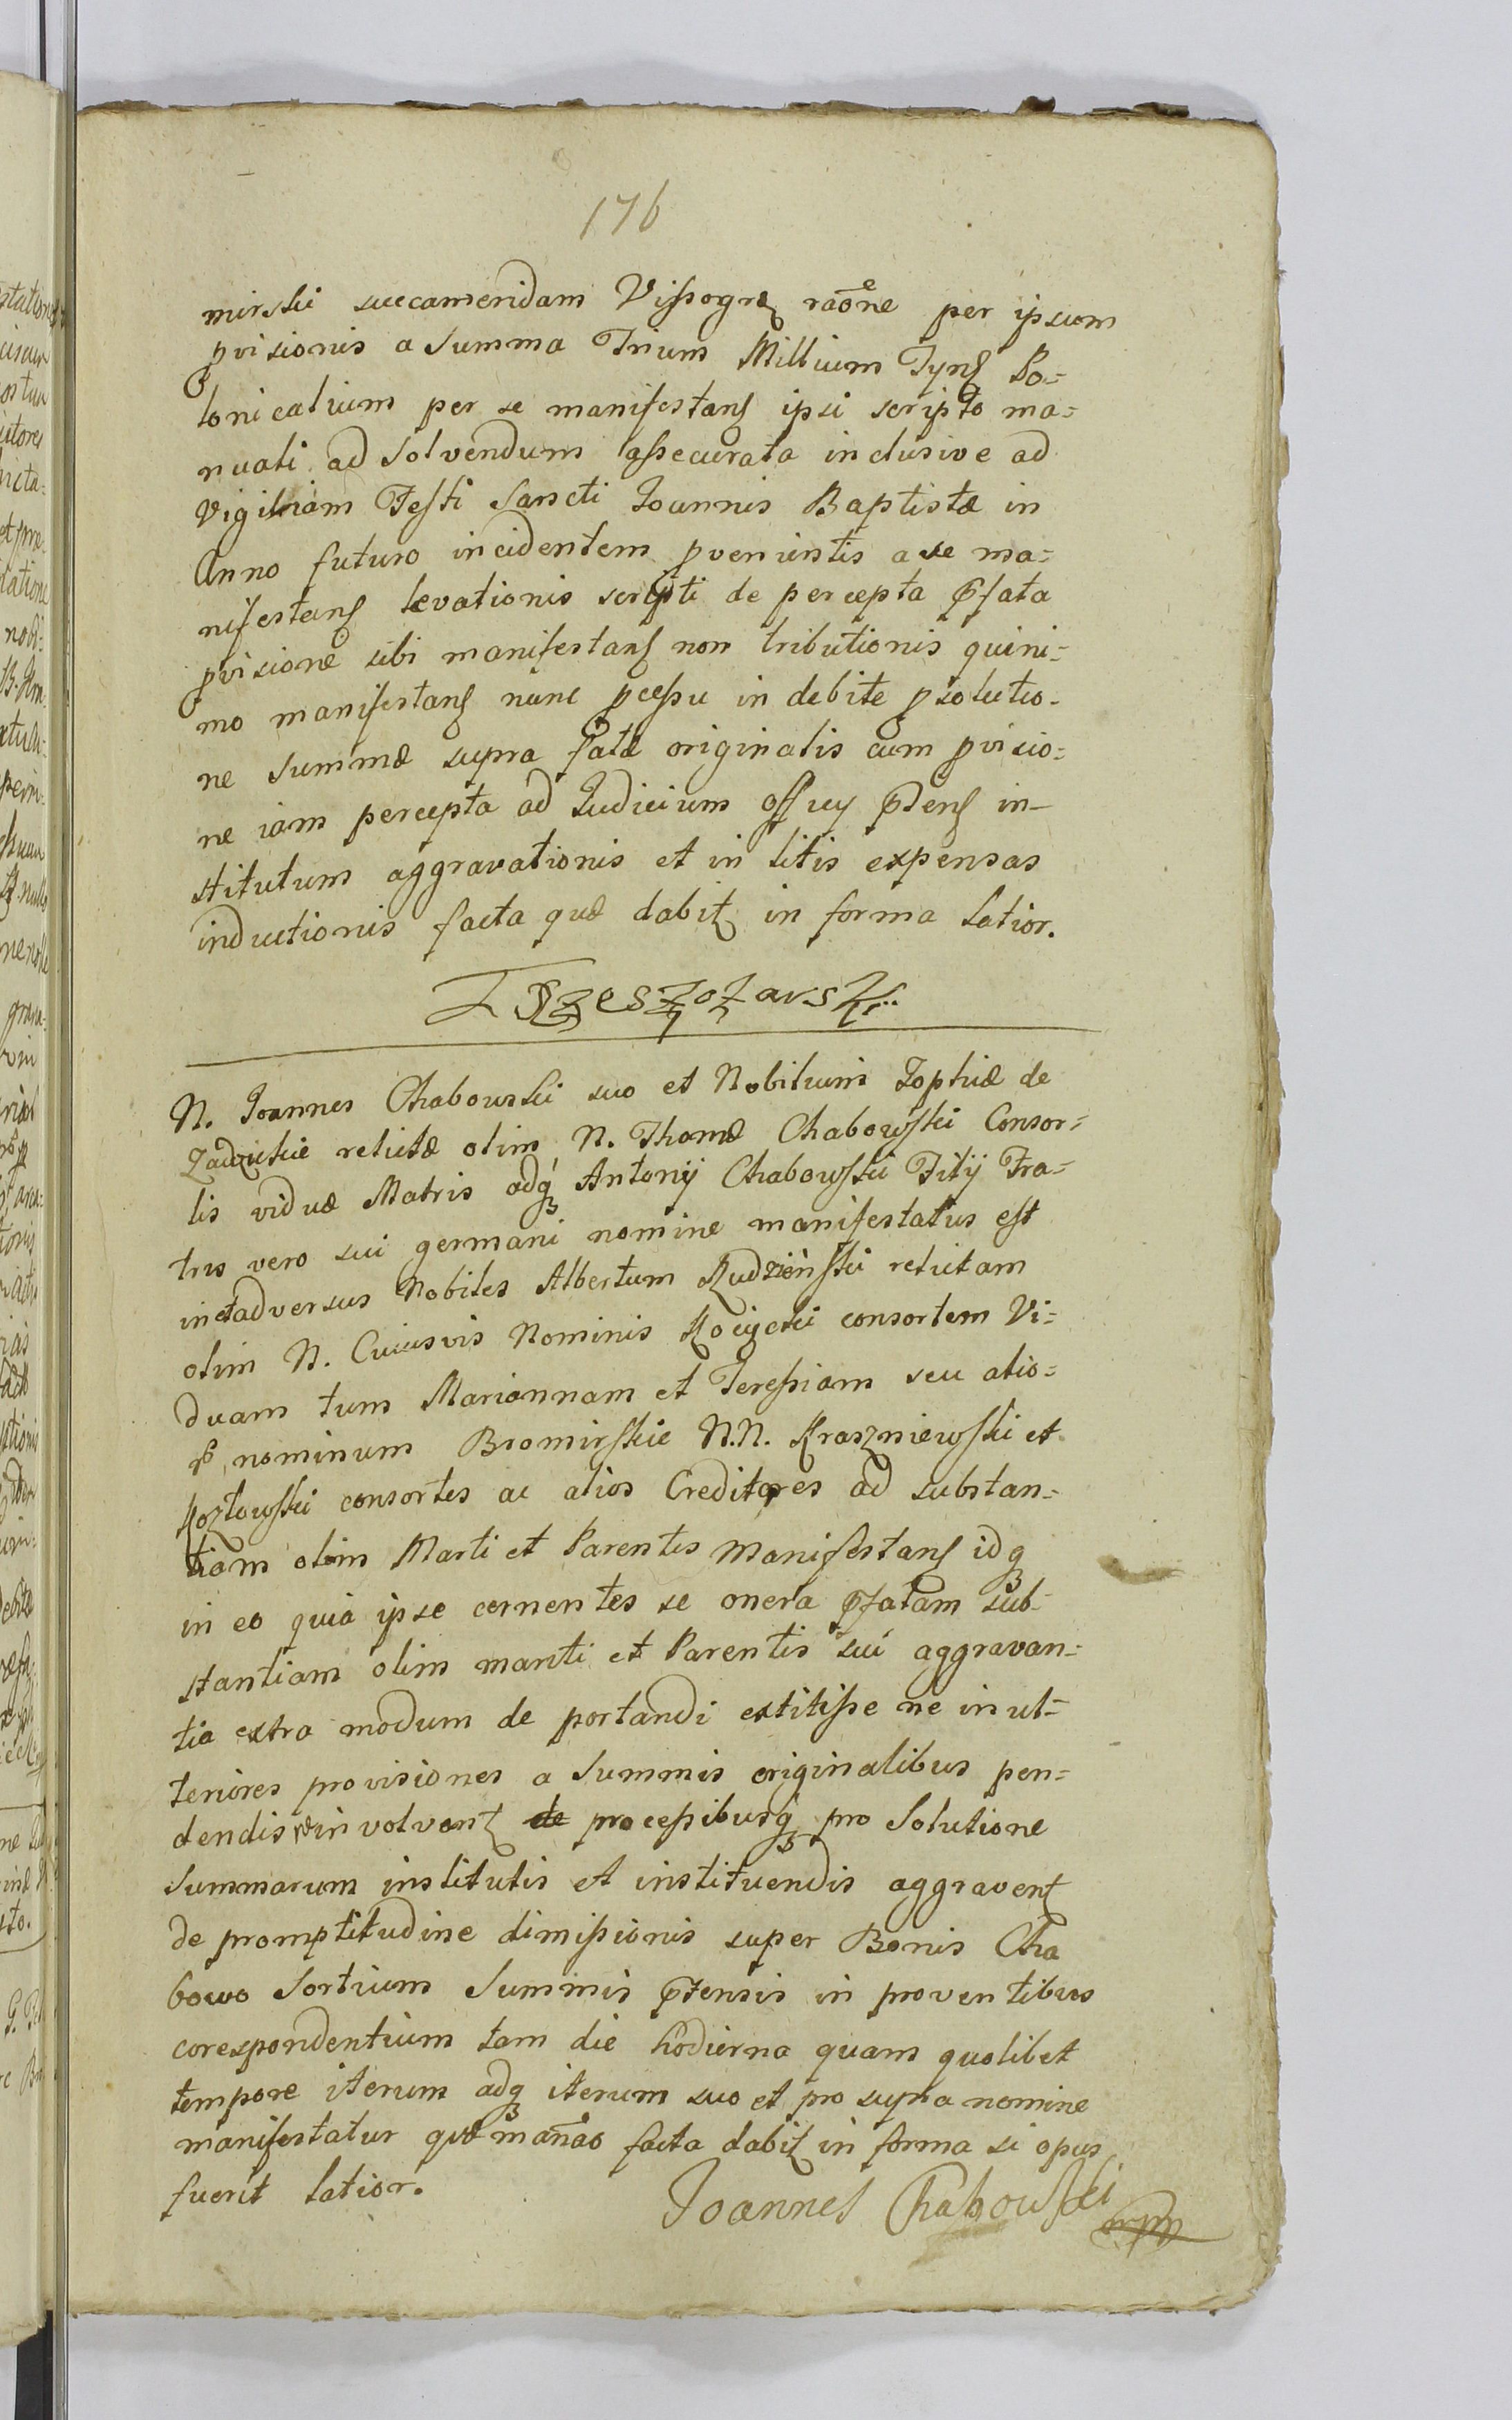 176
mirski succameridam Vissogrẽ raõne per ipsum
pvisionis a Summa Trium Millium Tynf Po=
lonicalium per se manifestanſ ipsi scripto ma=
nuali ad Solvendum assecurata inclusive ad
Vigiliam Festi Sancti Joannis Baptistæ in
Anno futuro incidentem pvenientis a se ma=
nifestanſ levationis scripti de percepta pfata
pvisione sibi manifestanſ non tributionis quini=
mo manifestanſ nunc pcessu indebite psolutio=
ne Summæ supra fatæ originalis cum pvisio=
ne iam percepta ad Judicium offſ ptens in=
stitutum aggravationis et in litis expensas
inductionis facta quæ dabit in forma latior.
N. Joannes Chabowski suo et Nobilium Zophiæ de
Zawickie relictæ olim N. Thomæ Chabowski Consor=
tis viduæ Matris adq Antonij Chabowski Filij Fra=
tris vero sui germani nomine manifestatus est
in et adversus Nobiles Albertum Rudzieński relictam
olim N. Cuiusvis Nominis consortem Vi=
duam tum Mariannam et Teressiam seu alio=
rum nominum Bromirskie N.N. Kraszniewski et
Kozłowski consortes ac alios Creditores ad substan=
tiam olim Mariti et Parentis Manifestanſ idq
in eo quia ipse cernentes se onera pfatam sub=
stantiam olim mariti et Parentis sui aggravan=
tia extra modum de portandi extitisse ne in ul=
teriores provisiones a Summis originalibus pen=
dendis se involvant de processibusq pro Solutione
Summarum institutis et instituendis aggravent
de promptitudine dimissionis super Bonis Cha
bowo Sortium Summis ptensis in proventibus
corespondentium tam die hodierna quam quolibet
tempore iterum adq iterum suo et pro supra nomine
manifestatur quæ mañao facta dabit in forma si opus
fuerit latior.
Joannes Chabowski mpp